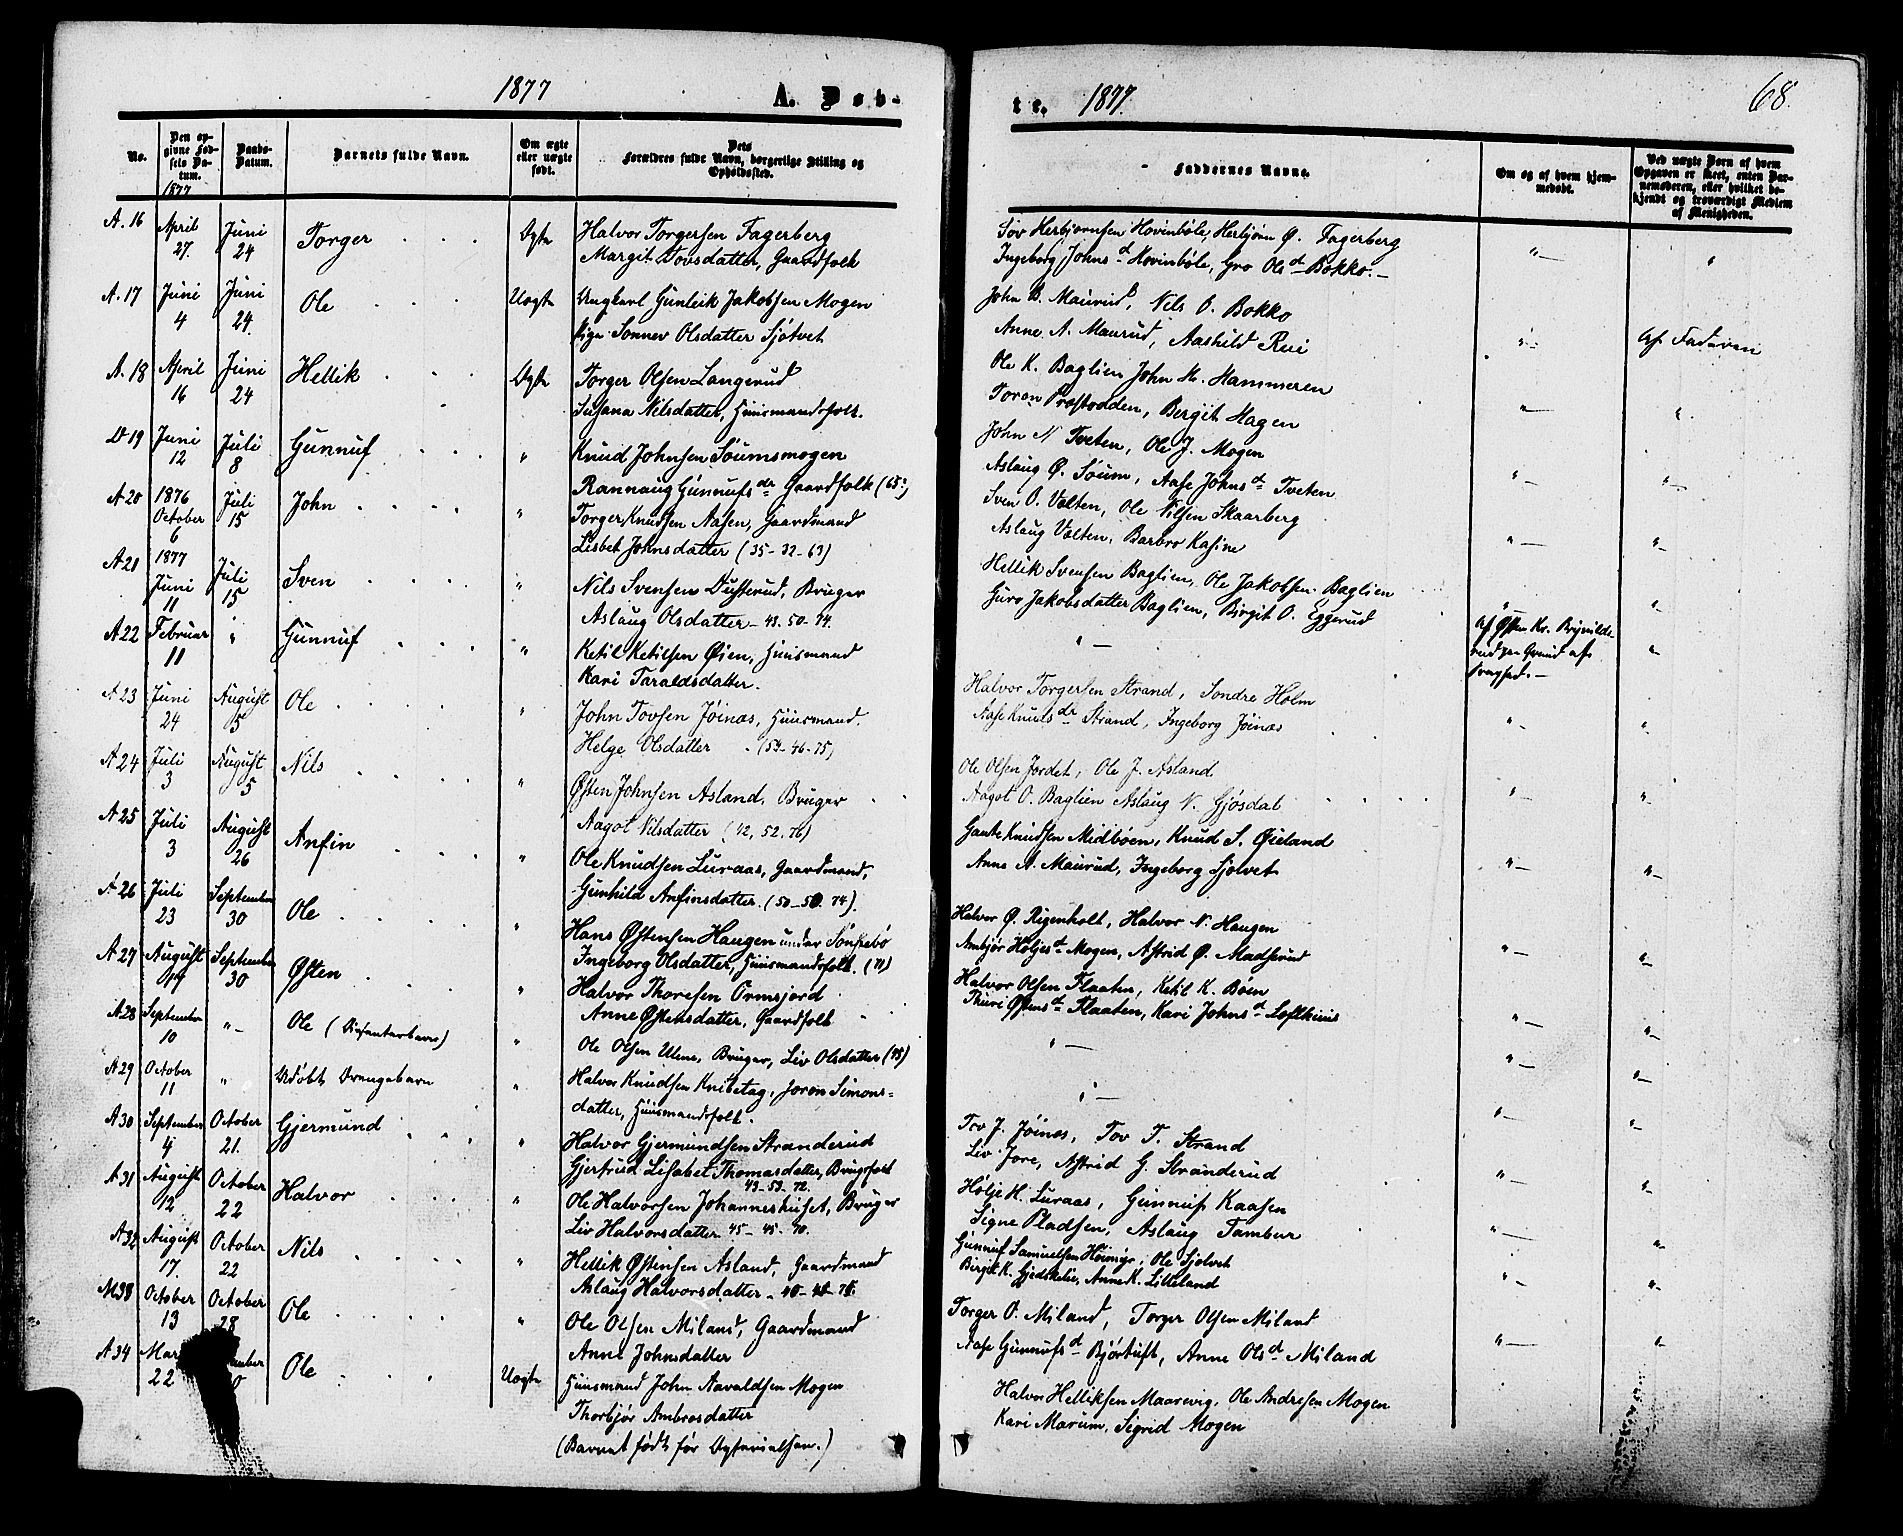 1877
A. Døb-
No.
Den op-
givne Fød-
sels Da-
tum.
1877
Daabs-
Datum.
Barnets fulde Navn.
Om ægte
eller uægte
født.
Dets
Forældres fulde Navn, borgerlige Stilling og
Opholdssted.
A. 16 April 27. Juni 24 Torger Ægte Halvor Torgersen Fagerberg
Margit Tovsdatter, Gaardfolk
A. 17 Juni 4 Juni 24. Ole Uægte Ungkarl Gunleik Jakobsen Mogen
Pige Sonnev Olsdatter Sjøtvet
A. 18 April 16 Juni 24 Hellik Ægte Torger Olsen Langerud
Susana Nilsdatter, Huusmandsfolk.
A 19 Juni 12 Juli 8 Gunnuf " Knud Johnsen Soumsmogen
Rannaug Gunnufsdr Gaardfolk
A 20 1876 October 6 Juli 15 John " Torger Knudsen Aasen, Gaardmand
Lisbet Johnsdatter (35-32-63)
A 21 1877 Juni 11 Juli 15 Sven " Nils Svensen Busterud, Bruger
Aslaug Olsdatter - 43. 50. 74.
A 22 Februar 11 " Gunnuf " Ketil Ketilsen Øien, Huusmand
Kari Taraldsdatter.
A 23 Juni 24 August 5 Ole " John Tovsen Jøinæs, Huusmand.
Helge Olsdatter (54-46-75)
A 24 Juli 3 August 5 Nils " Østen Johnsen Asland, Bruger
Aagot Nilsdatter (42, 52. 76)
A 25 Juli 3 August 26 Anfin " Ole Knudsen Luraas, Gaardmand,
Gunhild Anfinsdatter. (50-50. 74).
A 26 Juli 23 September 30 Ole " Hans Østensen Haugen under Sønstebø
Ingeborg Olsdatter, Huusmandsfolk. (71)
A 27 August September 30 Østen " Halvor Thoresen Ormsjord
Anne Østensdatter, Gaardfolk
A 28 September 10 " Ole (Dissenterbarn) " Ole Olsen Bruger, Liv Olsdatter
A 29 October 11 " Udøbt Drengebarn " Halvor Knudsen Knibetag, Joron Simons-
datter, Huusmandsfolk.
A 30 September 4 October 21. Gjermund " Halvor Gjermundsen Stranderud
Gjertrud Lisabet Thomasdatter, Brugsfolk
43-53-72.
A 31 August 12 October 22 Halvor " Ole Halvorsen Johanneshuset, Bruger
Liv Halvorsdatter 45-45-70.
A 32 August 17. October 22 Nils " Hellik Østensen Asland, Gaardmand
Aslaug Halvorsdatter
A 33 October 13 October 28 Ole " Ole Olsen Miland, Gaardmand
Anne Johnsdatter
A 34 Mar 22 Ole Uægte Huusmand John Aavaldsen Mogen
Thorbjør Ambrosdatter
(Barnet født før Ægtevielsen.)
te. 1877.
68.
Faddernes Navne.
Om og af hvem hjem-
medøbt.
Ved uægte Børn af hvem
Opgaven er skeet, enten Bar-
nemoderen, eller hvilket be-
kjendt og troværdigt Medlem
af Menigheden.
Tov Herbjørnsen Hovinbøle, Herbjørn Ø. Fagerberg
Ingeborg Johnsd Hovinbøle, Gro Olsd Bokko.
John B. Maurud, Nils O. Bokko
Anne A. Maurud, Aashild Rui Af Faderen
Ole K. Baglien John H. Hammeren
Toron Præstodden, Bergit Hagen
John N Tveten, Ole J. Mogen
Aslaug Ø. Søum, Aase Johnsd Tveten
Sven O. Vaalten, Ole Nilsen Skaarberg
Aslaug Vaalten, Barbro Kasine
Hellik Svensen Baglien, Ole Jakobsen Baglien
Guro Jakobsdatter Baglien, Birgit O. Eggerud
Af Østen Kr. Brynilds-
rud paa Grund af
Svaghed.
Halvor Torgersen Strand, Sondre Holm
Aase Knutsdr Strand, Ingeborg Jøinæs
Ole Olsen Jordet, Ole J. Asland
Aagot O. Baglien Aslaug N. Gjøsdal
Gaute Knudsen Midbøen, Knud S. Øieland
Anne A. Maurud, Ingeborg Sjotvet
Halvor Ø. Rigenholt, Halvor N. Haugen
Ambjør Høljesd Mogen, Astrid Ø. Madsrud
Halvor Olsen Flaaten, Ketil K. Bøen
Thuri Østensd Flaaten, Kari Johnsd Lofthuus
Tov J. Jøinæs, Tov T. Strand
Liv Jore, Astrid G. Stranderud
Hølje H. Luraas, Gunnuf Kaasen
Signe Pladsen, Aslaug Tambur
Gunnuf Samuelsen Høimyr, Ole Sjotvet
Birgit K. Gjedskelie, Anne K. Litteland
Torger O. Miland, Torger Olsen Miland
Aase Gunnufsd Bjørtuft, Anne Olsd Miland
Halvor Helliksen Maarevig, Ole Andresen Mogen
Kari Marum, Sigrid Mogen